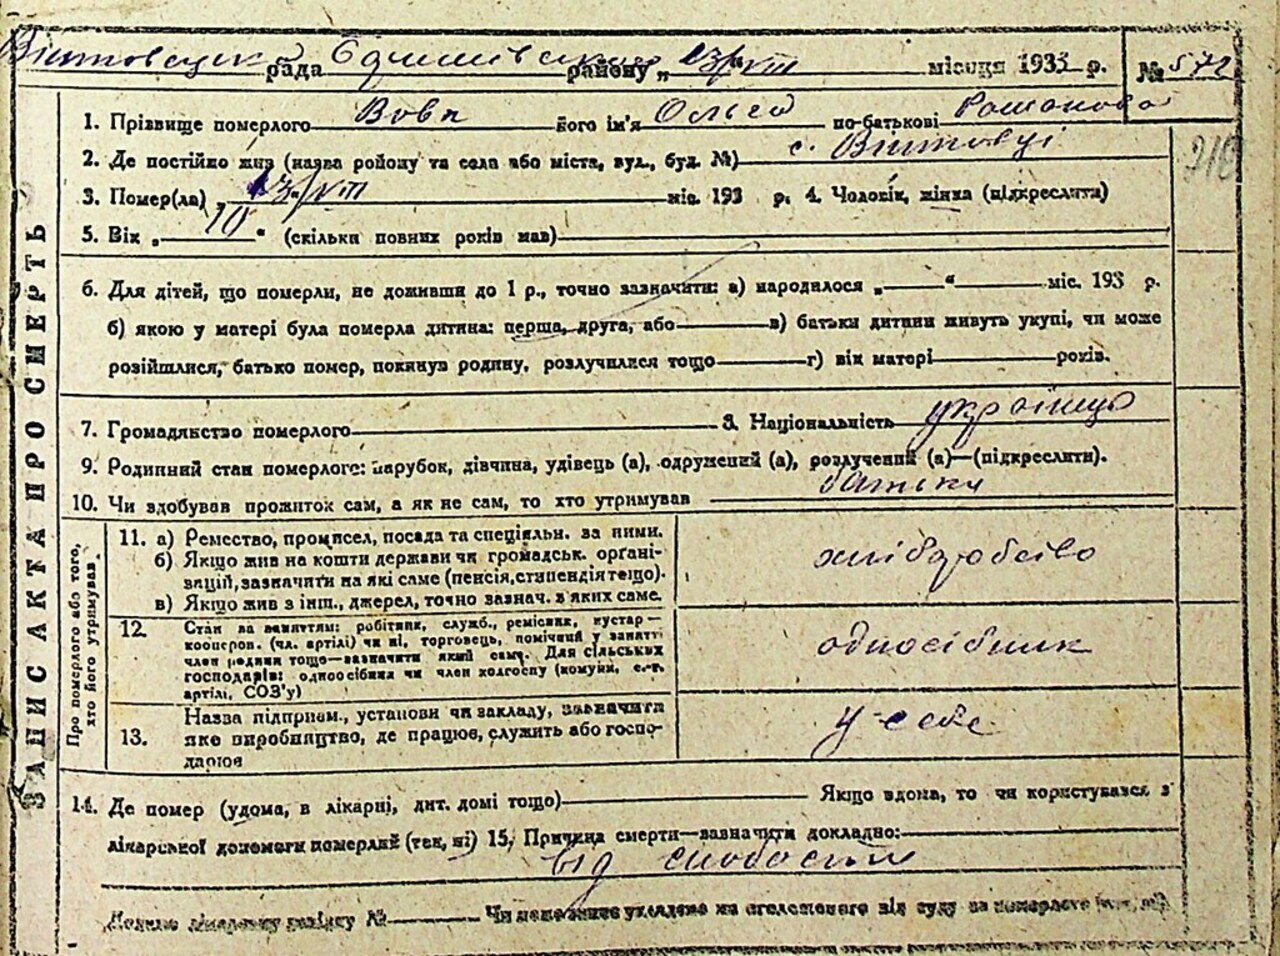 рада районy „ 13/VIII місяця 1933 р. № 572
1. Прізвище померлого Вовк його ім'я Ольга по-батькові Романова
2. Де постійно жив (назва району та села або міста, вул., буд. №) с.
3. Помер(ла) „13/VIII міс. 193 р. 4. Чоловік, жінка (підкреслити)
5. Вік „10“ (скільки повних років мав)
6. Для дітей, що померли, не доживши до 1 р., точно зазначити: а) народилося „ “ міс. 193 р.
б) якою у матері була померла дитина: перша, друга, або в) батьки дитини живуть укупі, чи може
розійшлися, батько помер, покинув родину, розлучилися тощо г) вік матері років.
7. Громадянство померлого 8. Національність українць
9. Родинний стан померлого: парубок, дівчина, удівець (а), одружений (а), розлучений (а)—(підкреслити).
10. Чи здобував прожиток сам, а як не сам, то хто утримував батьки
ЗАПИС АКТА ПРО СМЕРТЬ
Про померлого або того,
хто його утримував
11. а) Ремество, промисел, посада та спеціяльн. за ними.
б) Якщо жив на кошти держави чи громадськ. органі-
зацій, зазначити на які саме (пенсія, стипендія тощо).
в) Якщо жив з інш., джерел, точно зазнач. з яких саме.
12. Стан за заняттям: робітник, служб., ремісник, кустар—
кооперов. (чл. артілі) чи ні, торговець, помічний у занятті
член родини тощо—зазначити який саме. Для сільських
господарів: одноосібник чи член колгоспу (комуни, с.-г.
артілі, СОЗ'у)
односібник
13. Назва підприєм., установи чи закладу, зазначити
яке виробництво, де працює, служить або госпо-
дарює
у себе
14. Де помер (удома, в лікарні, дит. домі тощо) Якщо вдома, то чи користувався з
лікарської допомоги померлий (так, ні) 15. Причина смерти—зазначити докладно:
від слобости